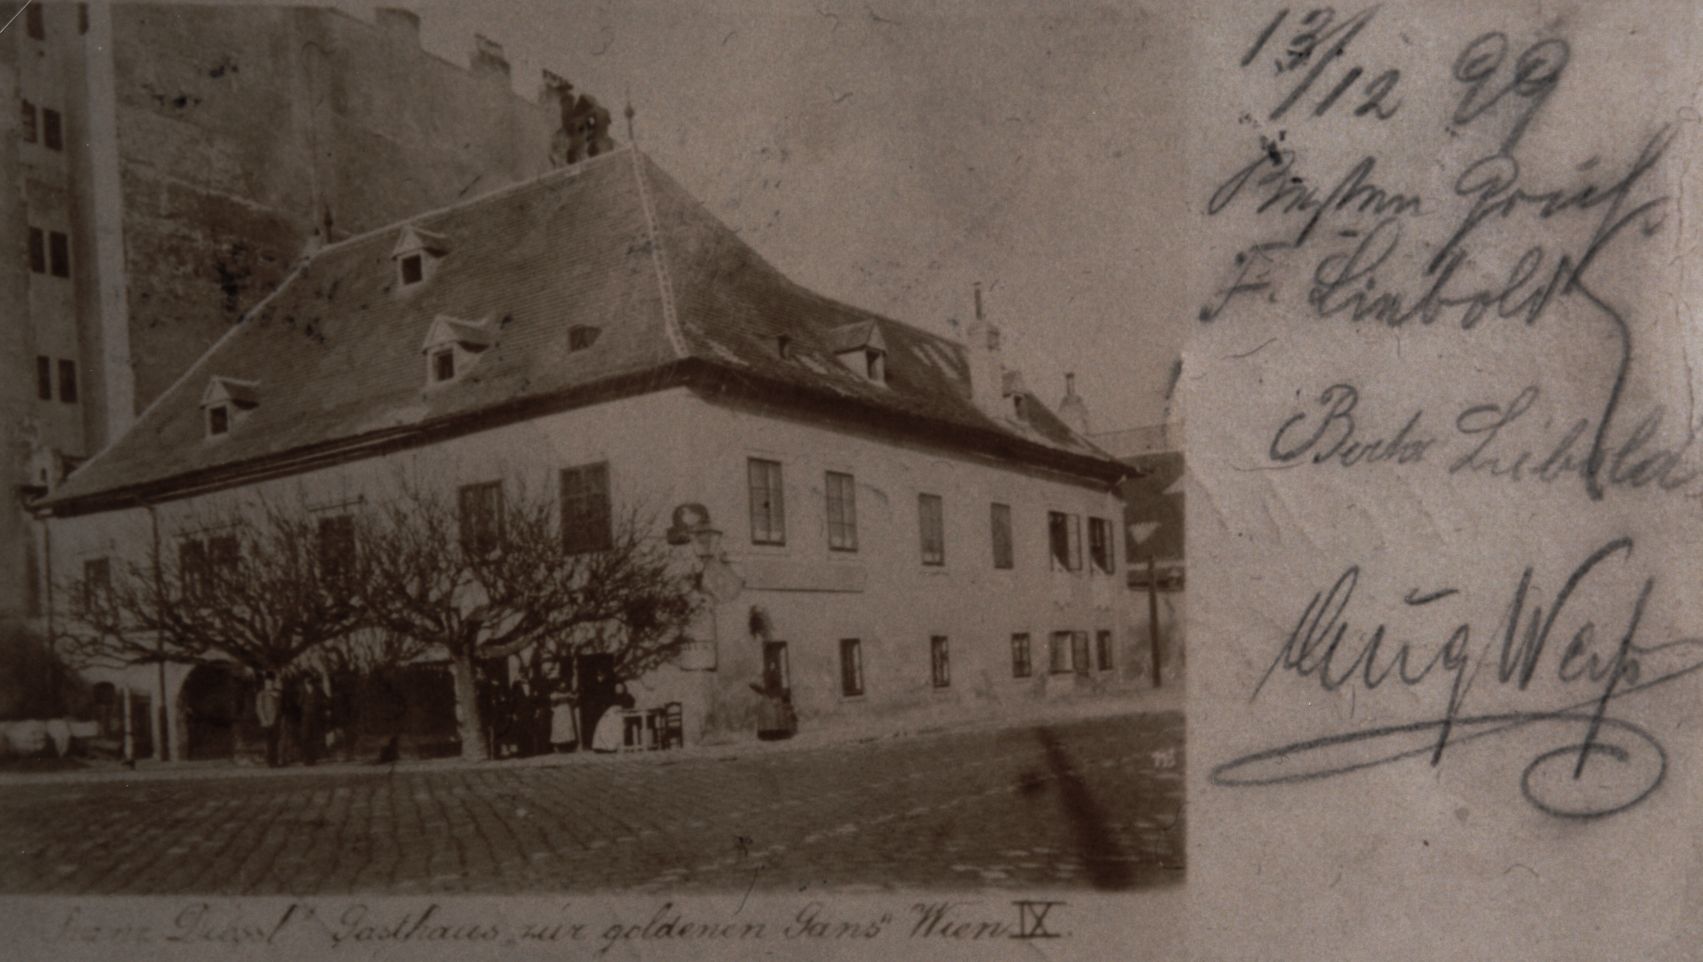 13/12 99
Besten Gruß
F. Liebold
Berta Liebold
Aug Weiß
Franz Diessl's Gasthaus "zur goldenen Gans" Wien IX.